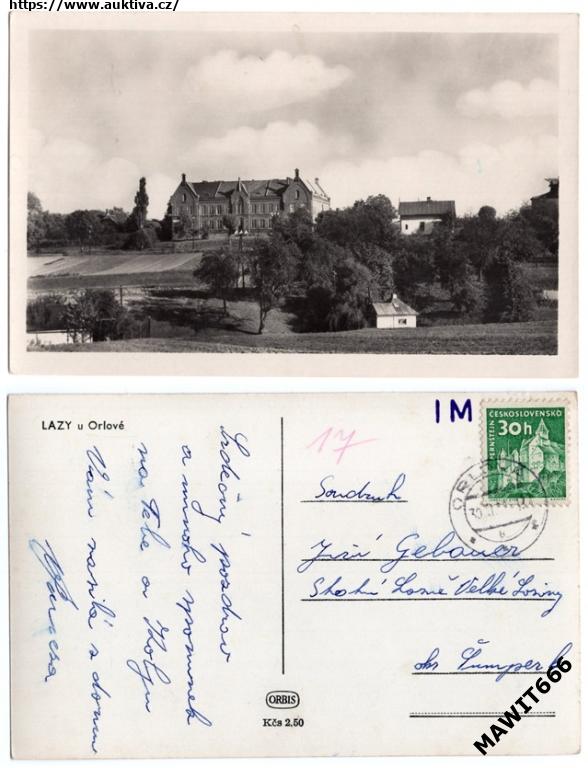 https://www.auktiva.cz/
LAZY u Orlové
Srdečný pozdrav
a mnoho vzpomínek
na Tebe a
Vám zasílá z domu
17
IM
PERNSTEJN
ČESKOSLOVENSKO
30h
ORLOVÁ
Soudruh
Jiří Gebauer
Státní Lázně Velké Losiny
okr Šumperk
ORBIS
Kčs 2,50
MAWIT666